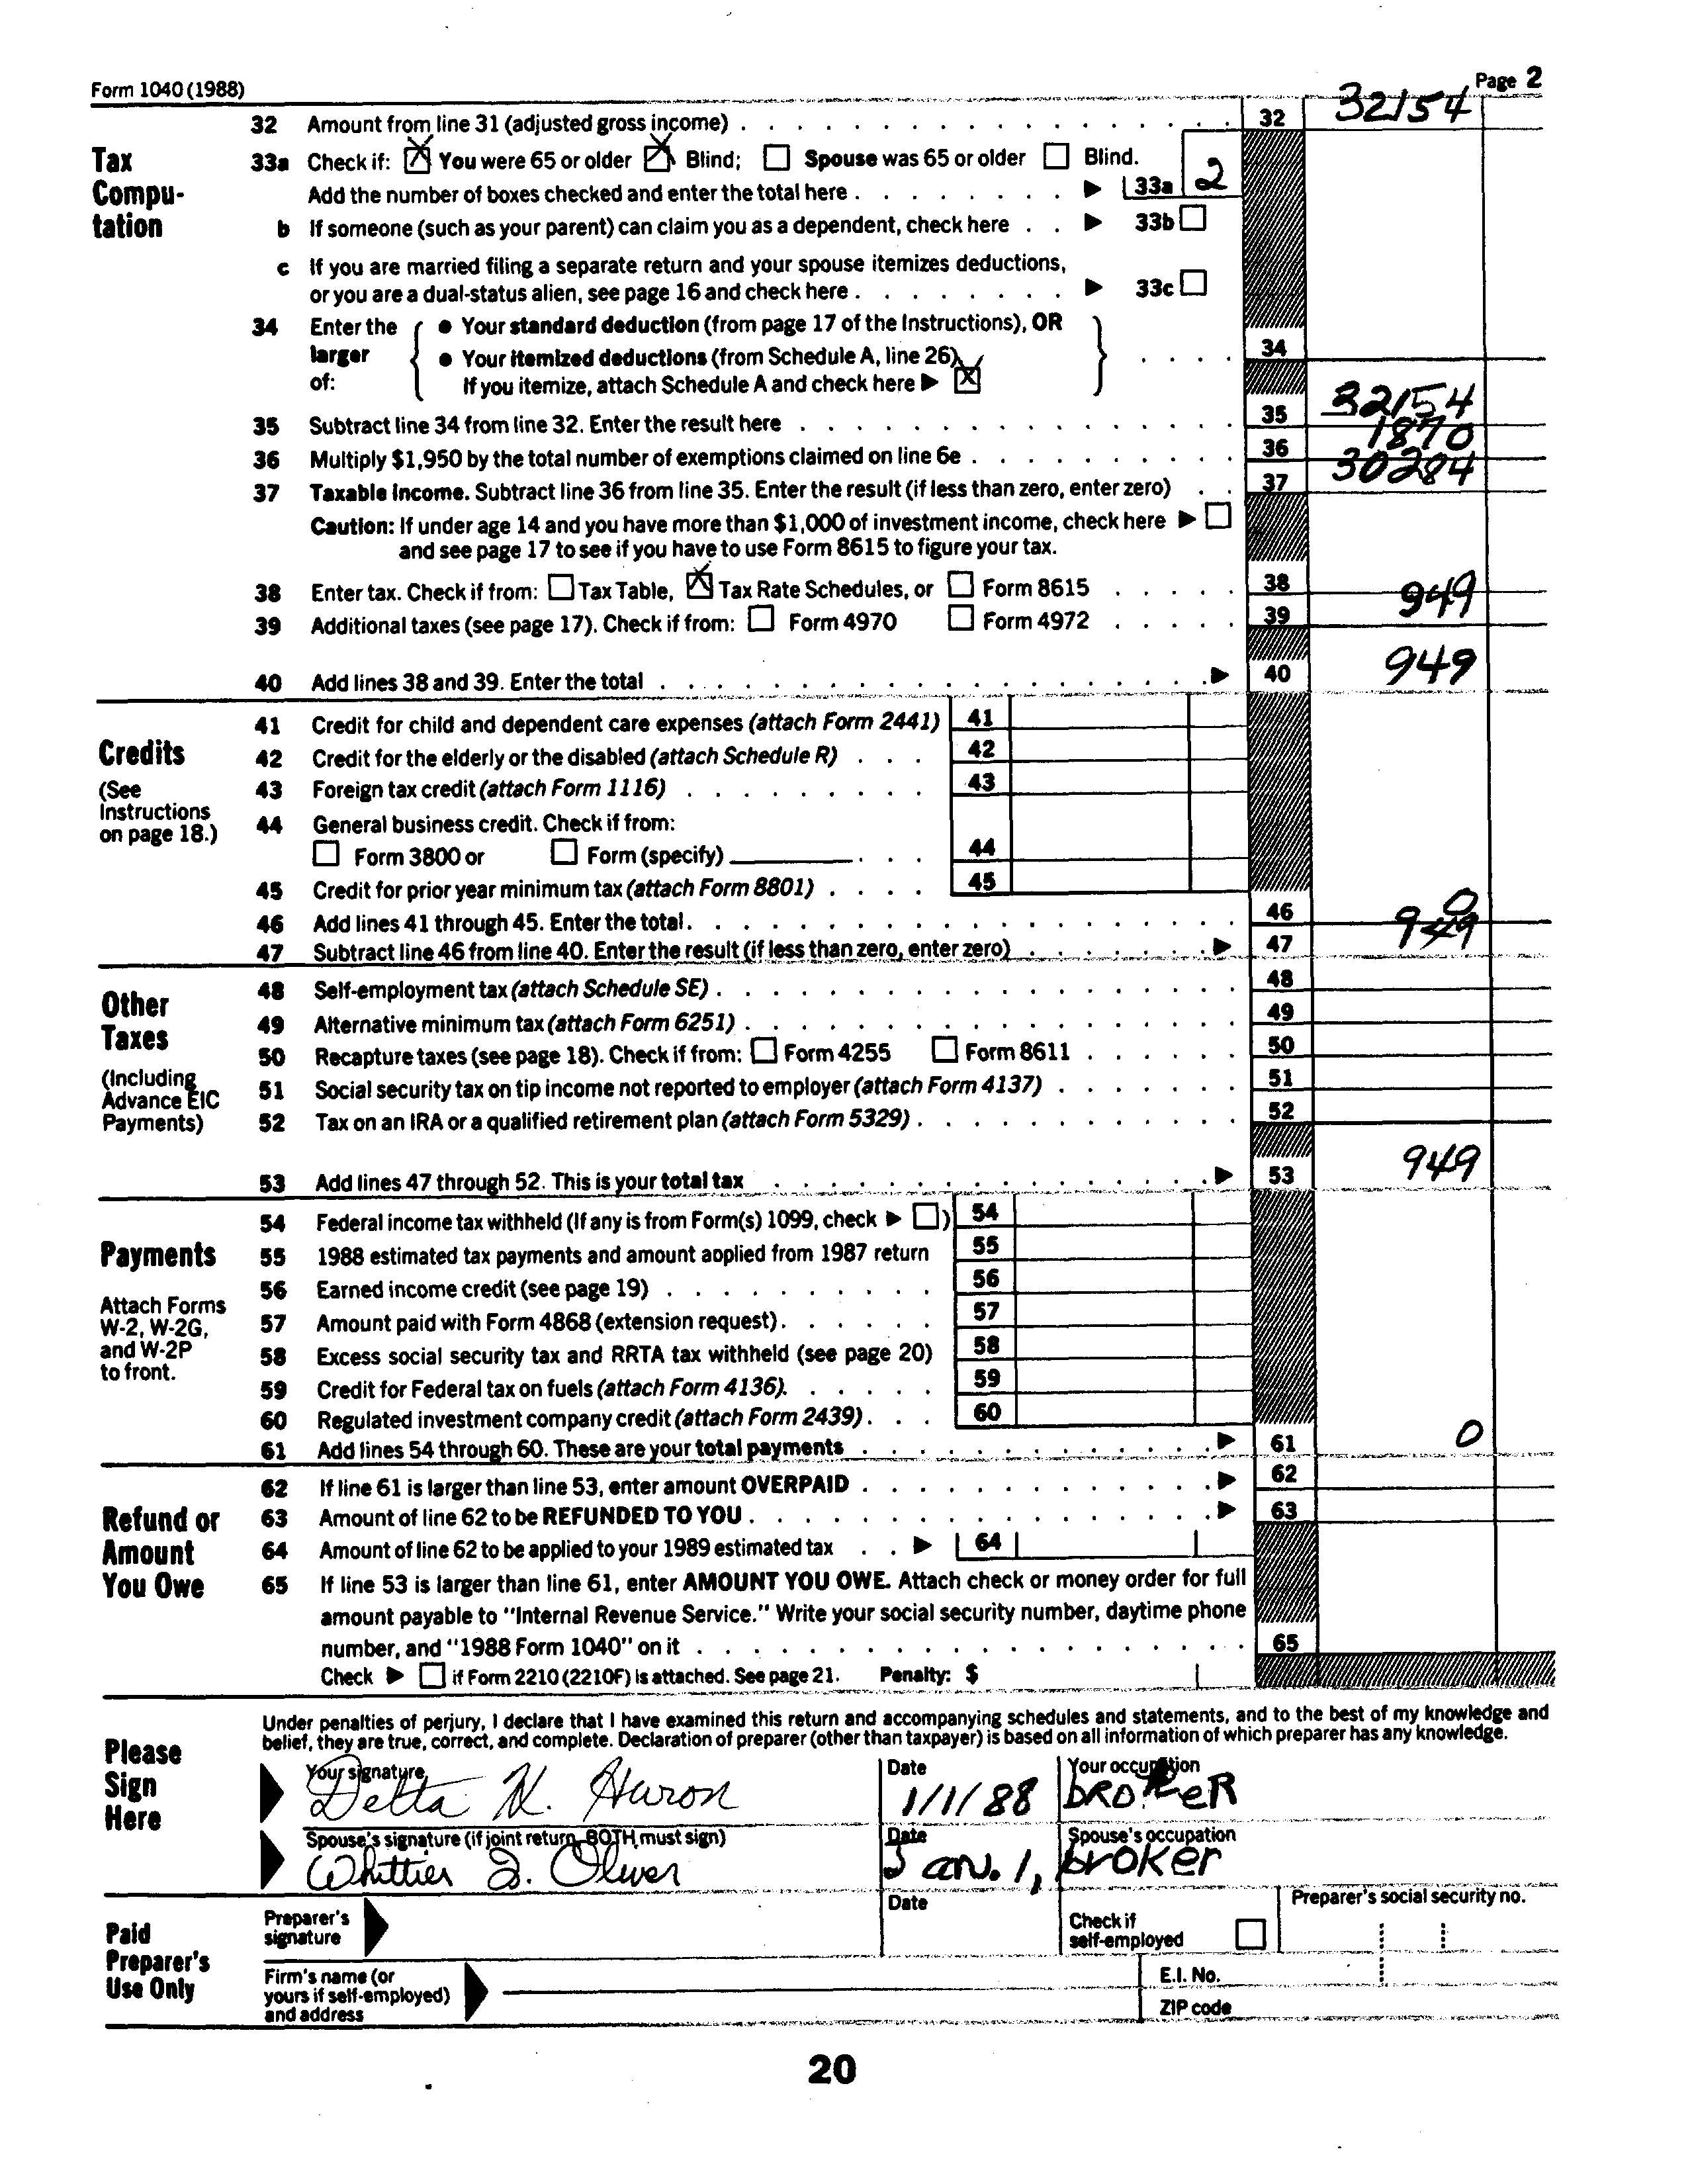 Form 1040 (1988) Page 2
32 Amount from line 31 (adjusted gross income) 32 32154
Tax Compu- tation
33a Check if: You were 65 or older Blind; Spouse was 65 or older Blind.
Add the number of boxes checked and enter the total here 33a 2
b If someone (such as your parent) can claim you as a dependent, check here 33b
c If you are married filing a separate return and your spouse itemizes deductions,
or you are a dual-status alien, see page 16 and check here 33c
34 Enter the larger of:
● Your standard deduction (from page 17 of the Instructions), OR
● Your itemized deductions (from Schedule A, line 26). 34
If you itemize, attach Schedule A and check here
35 Subtract line 34 from line 32. Enter the result here 35 32154
36 Multiply $1,950 by the total number of exemptions claimed on line 6e 36 1870
37 Taxable income. Subtract line 36 from line 35. Enter the result (if less than zero, enter zero) 37 30284
Caution: If under age 14 and you have more than $1,000 of investment income, check here
and see page 17 to see if you have to use Form 8615 to figure your tax.
38 Enter tax. Check if from: Tax Table, Tax Rate Schedules, or Form 8615 38 949
39 Additional taxes (see page 17). Check if from: Form 4970 Form 4972 39
40 Add lines 38 and 39. Enter the total 40 949
Credits
(See Instructions on page 18.)
41 Credit for child and dependent care expenses (attach Form 2441) 41
42 Credit for the elderly or the disabled (attach Schedule R) 42
43 Foreign tax credit (attach Form 1116) 43
44 General business credit. Check if from:
Form 3800 or Form (specify) 44
45 Credit for prior year minimum tax (attach Form 8801) 45
46 Add lines 41 through 45. Enter the total 46 0
47 Subtract line 46 from line 40. Enter the result (if less than zero, enter zero) 47 949
Other Taxes
(Including Advance EIC Payments)
48 Self-employment tax (attach Schedule SE) 48
49 Alternative minimum tax (attach Form 6251) 49
50 Recapture taxes (see page 18). Check if from: Form 4255 Form 8611 50
51 Social security tax on tip income not reported to employer (attach Form 4137) 51
52 Tax on an IRA or a qualified retirement plan (attach Form 5329) 52
53 Add lines 47 through 52. This is your total tax 53 949
Payments
Attach Forms W-2, W-2G, and W-2P to front.
54 Federal income tax withheld (If any is from Form(s) 1099, check ) 54
55 1988 estimated tax payments and amount applied from 1987 return 55
56 Earned income credit (see page 19) 56
57 Amount paid with Form 4868 (extension request) 57
58 Excess social security tax and RRTA tax withheld (see page 20) 58
59 Credit for Federal tax on fuels (attach Form 4136) 59
60 Regulated investment company credit (attach Form 2439) 60
61 Add lines 54 through 60. These are your total payments 61 0
Refund or Amount You Owe
62 If line 61 is larger than line 53, enter amount OVERPAID 62
63 Amount of line 62 to be REFUNDED TO YOU 63
64 Amount of line 62 to be applied to your 1989 estimated tax 64
65 If line 53 is larger than line 61, enter AMOUNT YOU OWE. Attach check or money order for full
amount payable to "Internal Revenue Service." Write your social security number, daytime phone
number, and "1988 Form 1040" on it 65
Check if Form 2210 (2210F) is attached. See page 21. Penalty: $
Please Sign Here
Under penalties of perjury, I declare that I have examined this return and accompanying schedules and statements, and to the best of my knowledge and
belief, they are true, correct, and complete. Declaration of preparer (other than taxpayer) is based on all information of which preparer has any knowledge.
Your signature Date Your occupation
Delta N. Huron 1/1/88 broker
Spouse's signature (if joint return, BOTH must sign) Date Spouse's occupation
Whittier J. Oliver Jan. 1, broker
Paid Preparer's Use Only
Preparer's signature Date Check if self-employed Preparer's social security no.
Firm's name (or yours if self-employed) and address E.I. No.
ZIP code
20